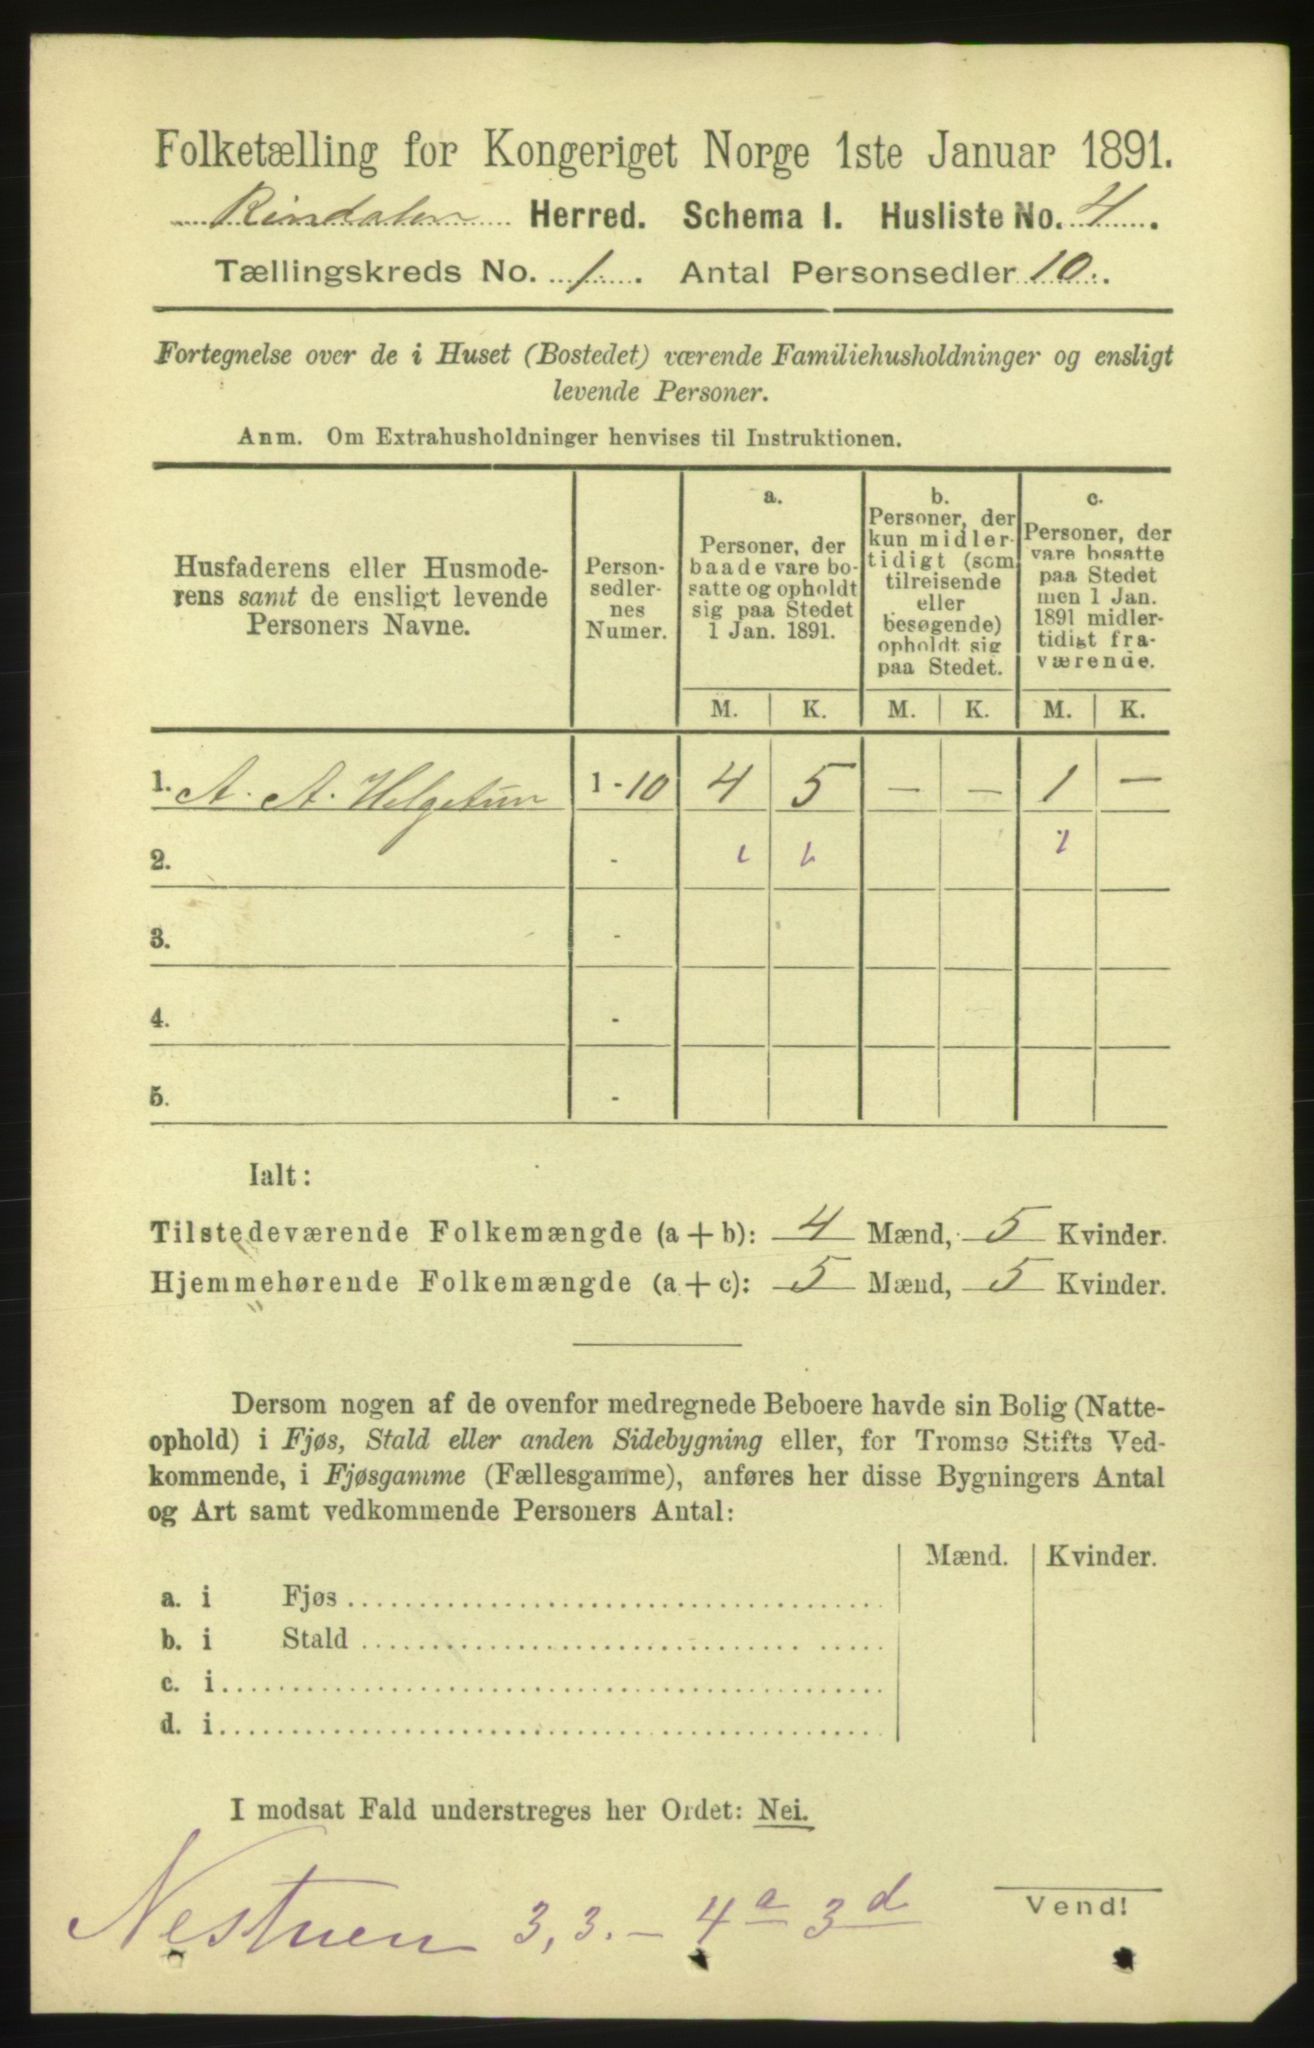 Folketælling for Kongeriget Norge 1ste Januar 1891.
Rindalen Herred. Schema I. Husliste No. 4.
Tællingskreds No. 1. Antal Personsedler 10.
Fortegnelse over de i Huset (Bostedet) værende Familiehusholdninger og ensligt
levende Personer.
Anm. Om Extrahusholdninger henvises til Instruktionen.
Husfaderens eller Husmode-
rens samt de ensligt levende
Personers Navne.
Person-
sedler-
nes
Numer.
a.
Personer, der
baade vare bo-
satte og opholdt
sig paa Stedet
1 Jan. 1891.
b.
Personer, der
kun midler-
tidigt (som
tilreisende
eller
besøgende)
opholdt sig
paa Stedet.
c.
Personer, der
vare bosatte
paa Stedet
men 1 Jan.
1891 midler-
tidigt fra-
værende.
M. K. M. K. M. K.
1. A. A. Helgetun 1 - 10 4 5 — — 1 —
2. -
3. -
4. -
5. -
Ialt:
Tilstedeværende Folkemængde (a + b): 4 Mænd, 5 Kvinder.
Hjemmehørende Folkemængde (a + c): 5 Mænd, 5 Kvinder.
Dersom nogen af de ovenfor medregnede Beboere havde sin Bolig (Natte-
ophold) i Fjøs, Stald eller anden Sidebygning eller, for Tromsø Stifts Ved-
kommende, i Fjøsgamme (Fællesgamme), anføres her disse Bygningers Antal
og Art samt vedkommende Personers Antal:
Mænd. Kvinder.
a. i Fjøs
b. i Stald
c. i
d. i
I modsat Fald understreges her Ordet: Nei.
Vend!
Nestuen 3,3. — 4a 3d